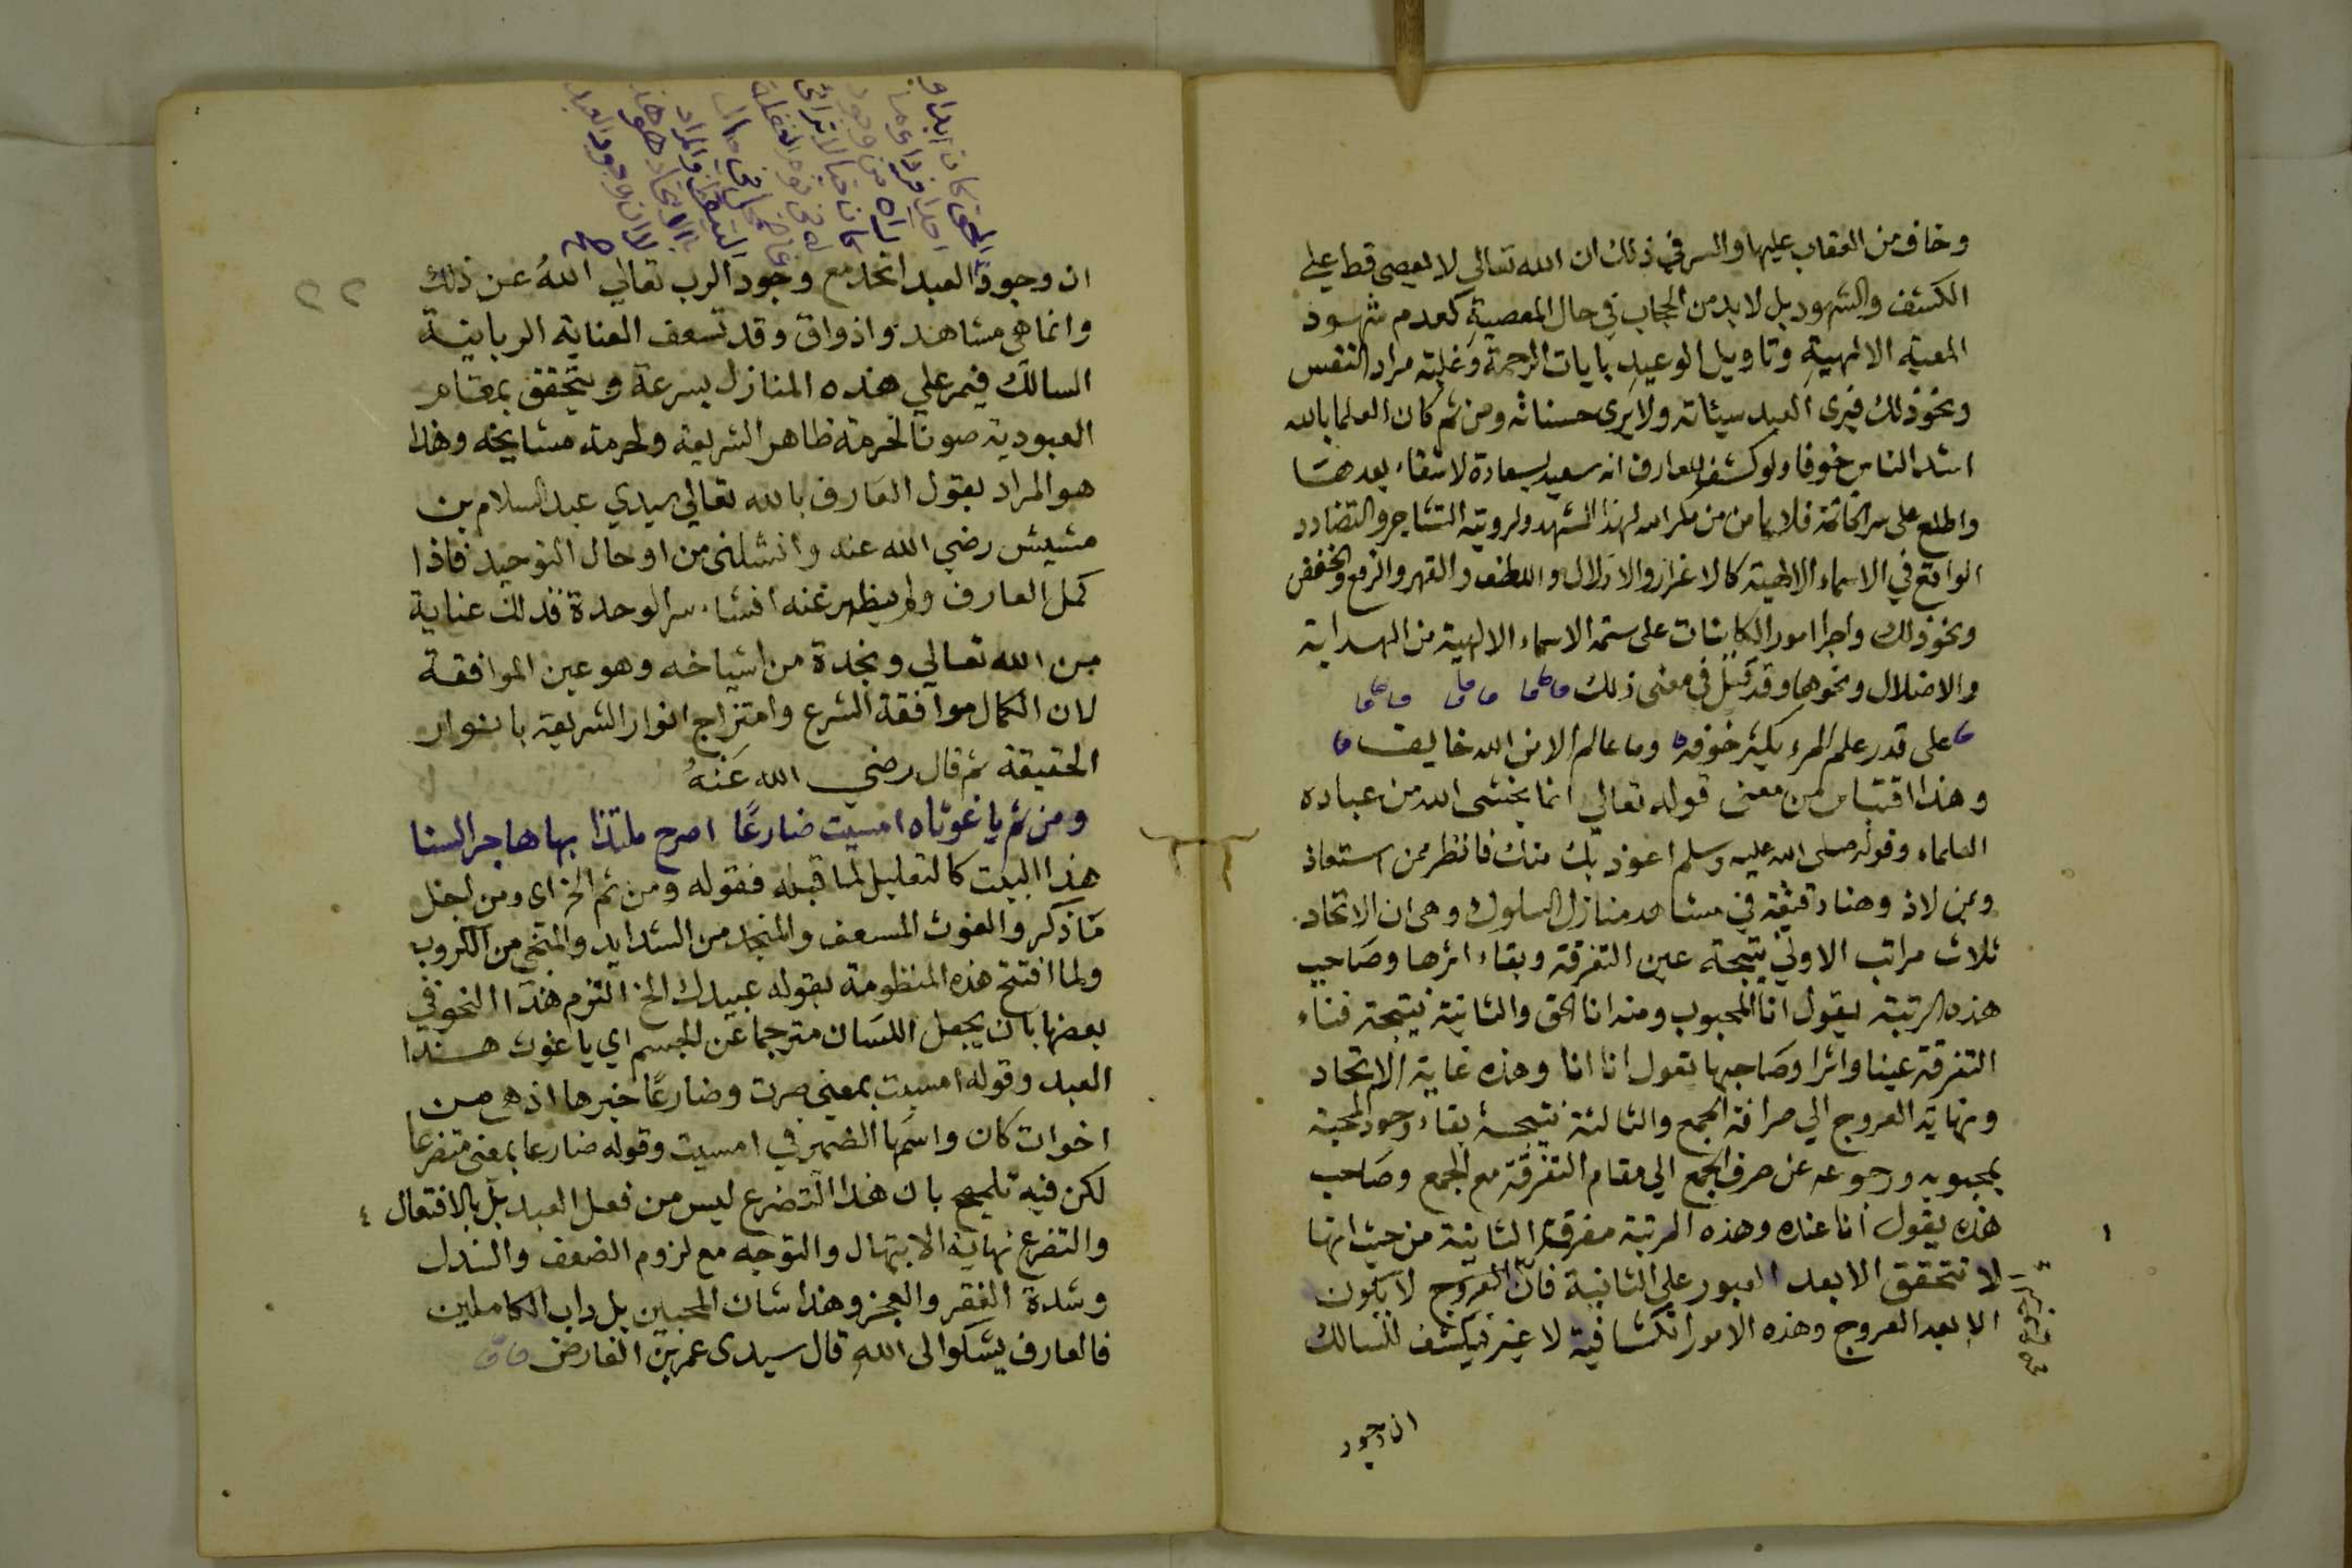 وخاف من العقاب عليها والسر في ذلك ان الله تعالي لا يعصى قط علي
الكشف والشهود بل لا بد من الحجاب في حال المعصية كعدم شهود
المعية الالهية وتاويل الوعيد بايات الرحمة وغلبة مراد النفس
ونحو ذلك فيرى العبد سيئاته ولا يرى حسناته ومن ثم كان العلما بالله
اشد الناس خوفا ولو كشف للعارف انه سعيد بسعادة لا شقاء بعدها
واطلع على سر الخاتمة فلا يامن من مكر الله لهذا المشهد ولرويته التشاجر والتضادد
الواقع في الاسماء الالهية كالاعزاز والاذلال واللطف والقهر والرفع والخفض
ونحو ذلك واجرا امور الكاينات على ستمة الاسماء الالهية من الهداية
والاضلال ونحوهما وقد قيل في معنى ذلك
على قدر علم المرء يكثر خوفه وما عالم الا من الله خايف
وهذا اقتباس من معنى قوله تعالي انما يخشى الله من عباده
العلماء وقوله صلى الله عليه وسلم اعوذ بك منك فانظر ممن استعاذ
وبمن لاذ وهنا دقيقة في مشاهد منازل السلوك وهى ان الاتحاد
ثلاث مراتب الاولي نتيجة عين التفرقة وبقاء اثرها وصاحب
هذه الرتبة يقول انا المحبوب ومنه انا الحق والثانية نتيجة فناء
التفرقة عينا واثرا وصاحبها يقول انا انا وهذه غاية الاتحاد
ونهاية العروج الي صرافة الجمع والثالثة نتيجة بقاء وجود المحبة
بمحبوبه ورجوعه عن صرف الجمع الي مقام التفرقة مع الجمع وصاحب
هذه يقول انا عنده وهذه المرتبة مفرقة الثانية من حيث انها
لا تتحقق الا بعد العبور على الثانية فان العروج لا يكون
الا بعد العروج وهذه الامور انكشافية لا غير فيكشف للسالك
ان وجود
ان وجود العبد اتحد مع وجود الرب تعالي الله عن ذلك
وانما هي مشاهد واذواق وقد تسعف العناية الربانية
السالك فيمر علي هذه المنازل بسرعة ويتحقق بمقام
العبودية صونا لحرمة ظاهر الشريعة ولحرمة مشايخه وهذا
هو المراد بقول العارف بالله تعالي سيدي عبد السلام بن
مشيش رضي الله عنه وانشلني من اوحال التوحيد فاذا
كمل العارف ولم يظهر عنه افشاء سر الوحدة فذلك عناية
من الله تعالي ونجدة من اشياخه وهو عين الموافقة
لان الكمال موافقة الشرع وامتزاج انوار الشريعة بانوار
الحقيقة ثم قال رضي الله عنه
ومن ثم يا غوثاه امسيت ضارعا اصرح ملتذا بها هاجر السنا
هذا البيت كالتعليل لما قبله فقوله ومن ثم الخ اى ومن اجل
ما ذكر والغوث المسعف والمنجد من الشدايد والمنجي من الكروب
ولما افتتح هذه المنظومة بقوله عبيدك الخ التزم هذا النحو في
بعضها بان يجعل اللسان مترجما عن الجسم اي يا غوث هذا
العبد وقوله امسيت بمعنى صرت وضارعا خبرها اذ هي من
اخوات كان واسمها الضمير في امسيت وقوله ضارعا بمعنى متضرعا
لكن فيه تلميح بان هذا التضرع ليس من فعل العبد بل بالافتعال
والتضرع نهاية الابتهال والتوجه مع لزوم الضعف والتذلل
وشدة الفقر والعجز وهذا شان المحبين بل داب الكاملين
فالعارف يشكوا الى الله قال سيدى عمر بن الفارض